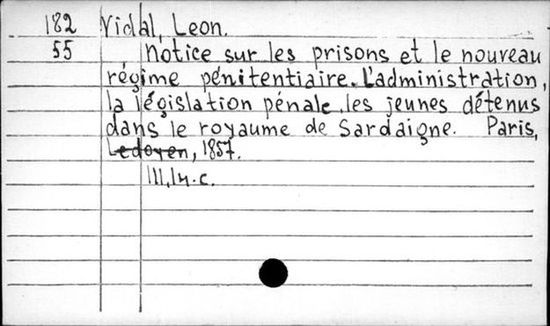 182 Vidal, Leon.
55 Notice sur les prisons et le nouveau
régime pénitentiaire. L'administration,
la législation pénale, les jeunes détenus
dans le royaume de Sardaigne. Paris,
Ledoyen, 1857.
III, In. c.